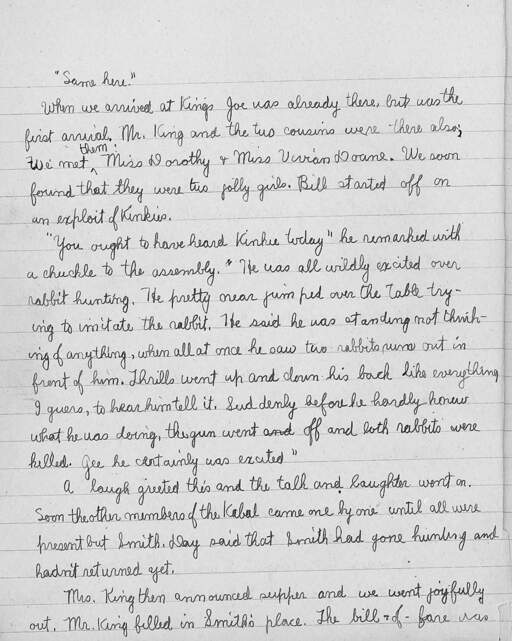 "Same here."
When we arrived at Kings Joe was already there, but was the
first arrival. Mr. King and the two cousins were there also;
We met them: Miss Dorothy & Miss Vivian Doane. We soon
found that they were two jolly girls. Bill started off on
an exploit of Kinkies.
"You ought to have heard Kinkie today" he remarked with
a chuckle to the assembly. "He was all wildly excited over
rabbit hunting. He pretty near jumped over the table try-
ing to imitate the rabbit. He said he was standing not think-
ing of anything, when all at once he saw two rabbits run out in
front of him. Thrills went up and down his back like everything
I guess, to hear him tell it. Suddenly before he hardly knew
what he was doing, the gun went and off and both rabbits were
killed. Gee he certainly was excited"
A laugh greeted this and the talk and laughter went on.
Soon the other members of the Kabal came one by one until all were
present but Smith. Day said that Smith had gone hunting and
hadn't returned yet.
Mrs. King then announced supper and we went joyfully
out. Mr. King filled in Smith's place. The bill-of-fare was